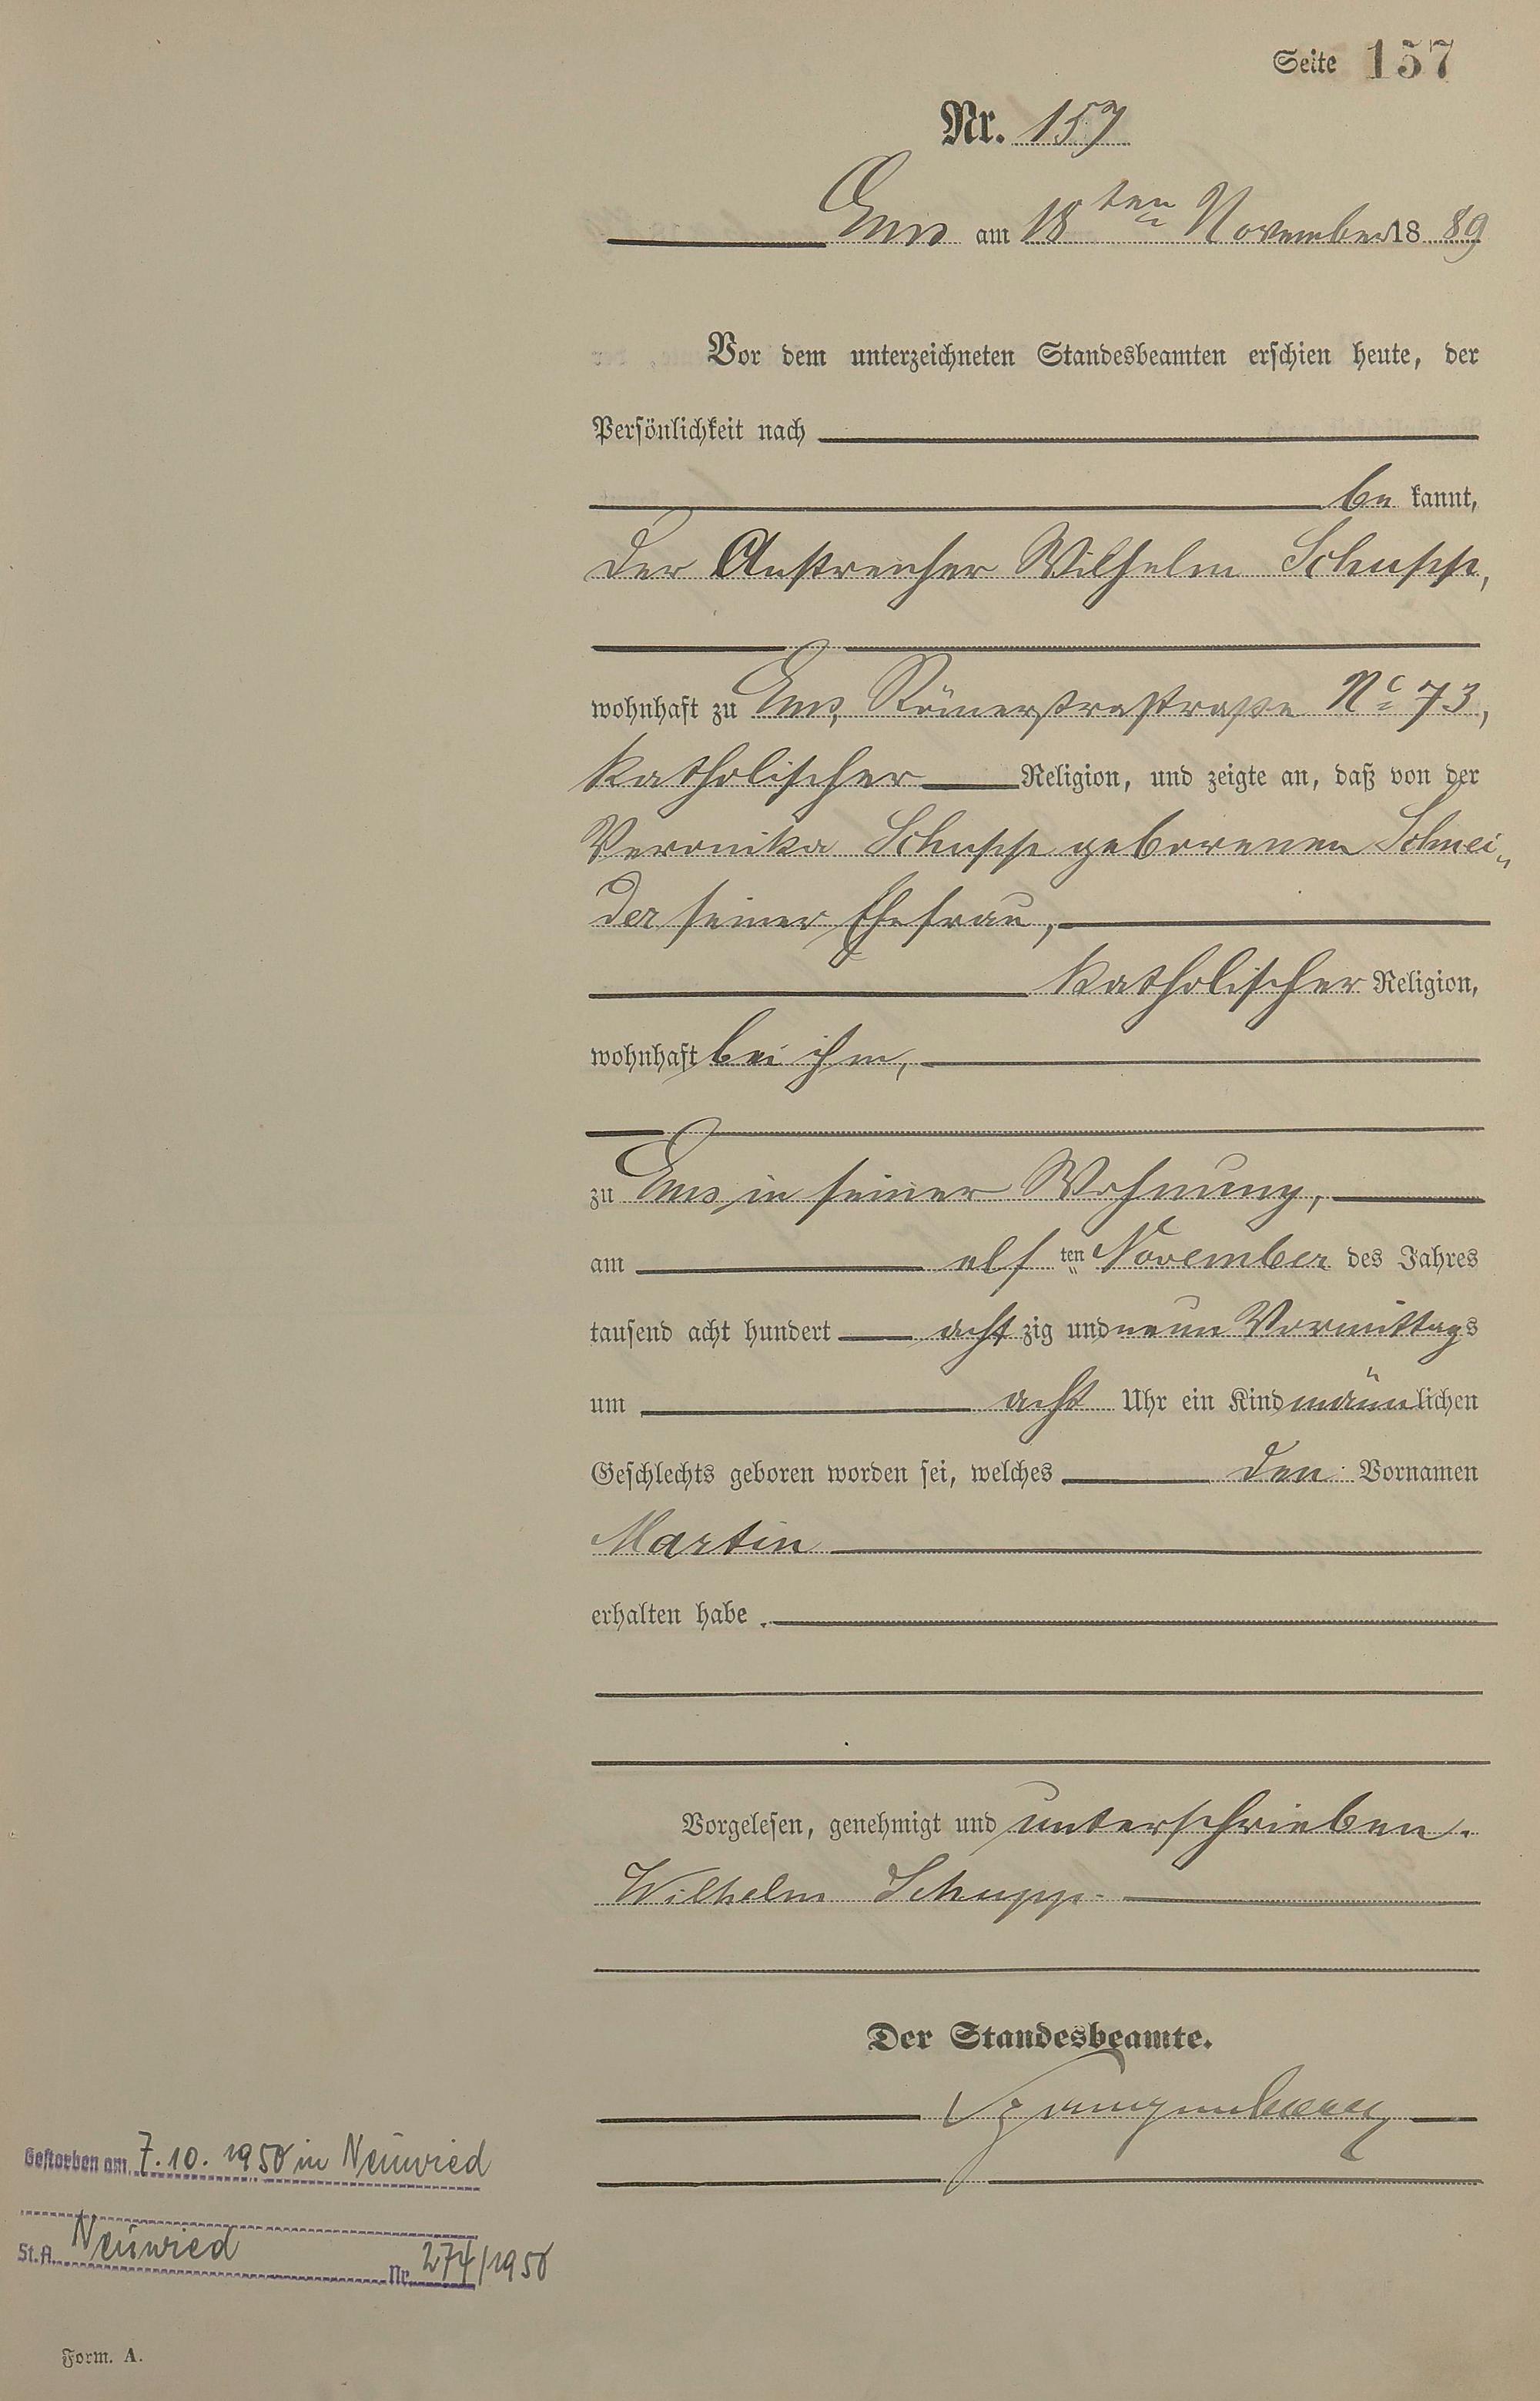 Seite 157
Nr. 157
Ems am 18ten November 1889
Vor dem unterzeichneten Standesbeamten erschien heute, der
Persönlichkeit nach
be kannt,
der Anstreicher Wilhelm Schupp,
wohnhaft zu Ems, Römerstrastraße No 73,
katholischer Religion, und zeigte an, daß von der
Veronika Schupp geborenen Schnei-
der seiner Ehefrau,
katholischer Religion,
wohnhaft bei ihm,
zu Ems in seiner Wohnung,
am elf ten November des Jahres
tausend acht hundert acht zig und neun Vormittags
um acht Uhr ein Kind männlichen
Geschlechts geboren worden sei, welches den Vornamen
Martin
erhalten habe.
Vorgelesen, genehmigt und unterschrieben.
Wilhelm Schupp.
Der Standesbeamte.
Gestorben am 7.10.1950 in Neuwied
St.A. Neuwied Nr. 274/1950
Form. A.